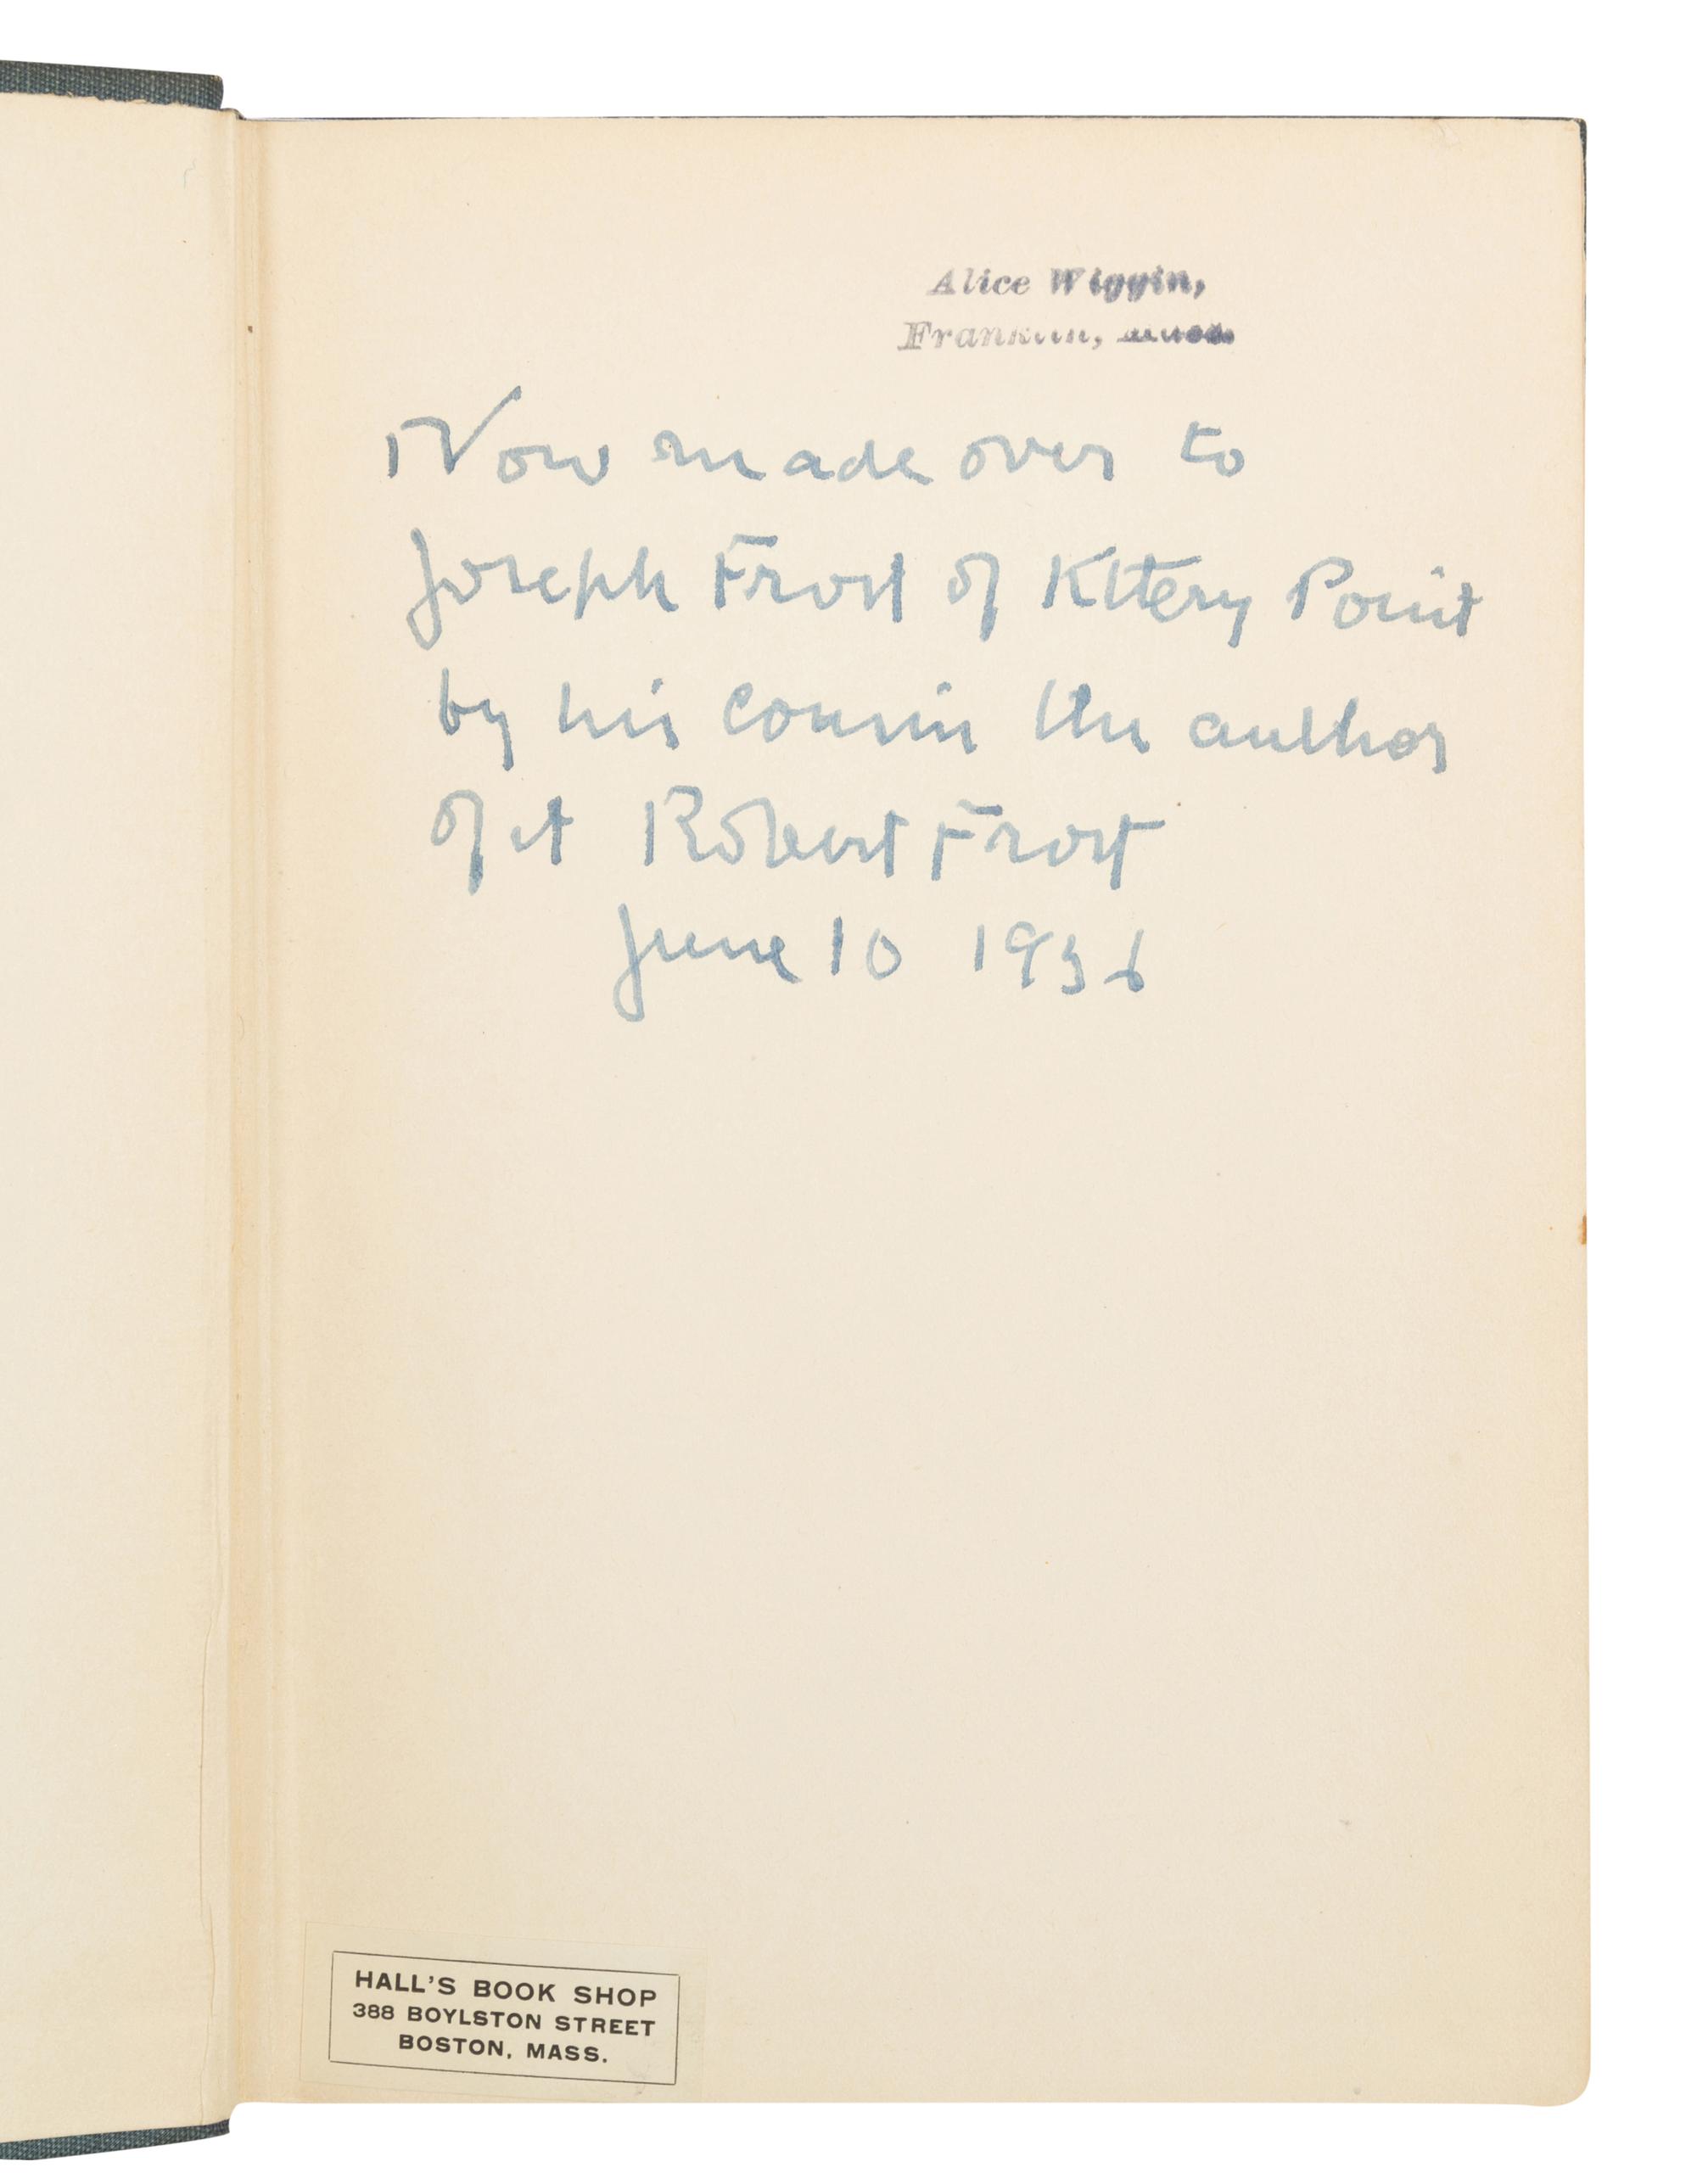 Alice Wiggin,
Franklin,
Now made over to
Joseph Frost of Kittery Point
by his cousin the author
of it Robert Frost
June 10 1936
HALL'S BOOK SHOP
388 BOYLSTON STREET
BOSTON, MASS.